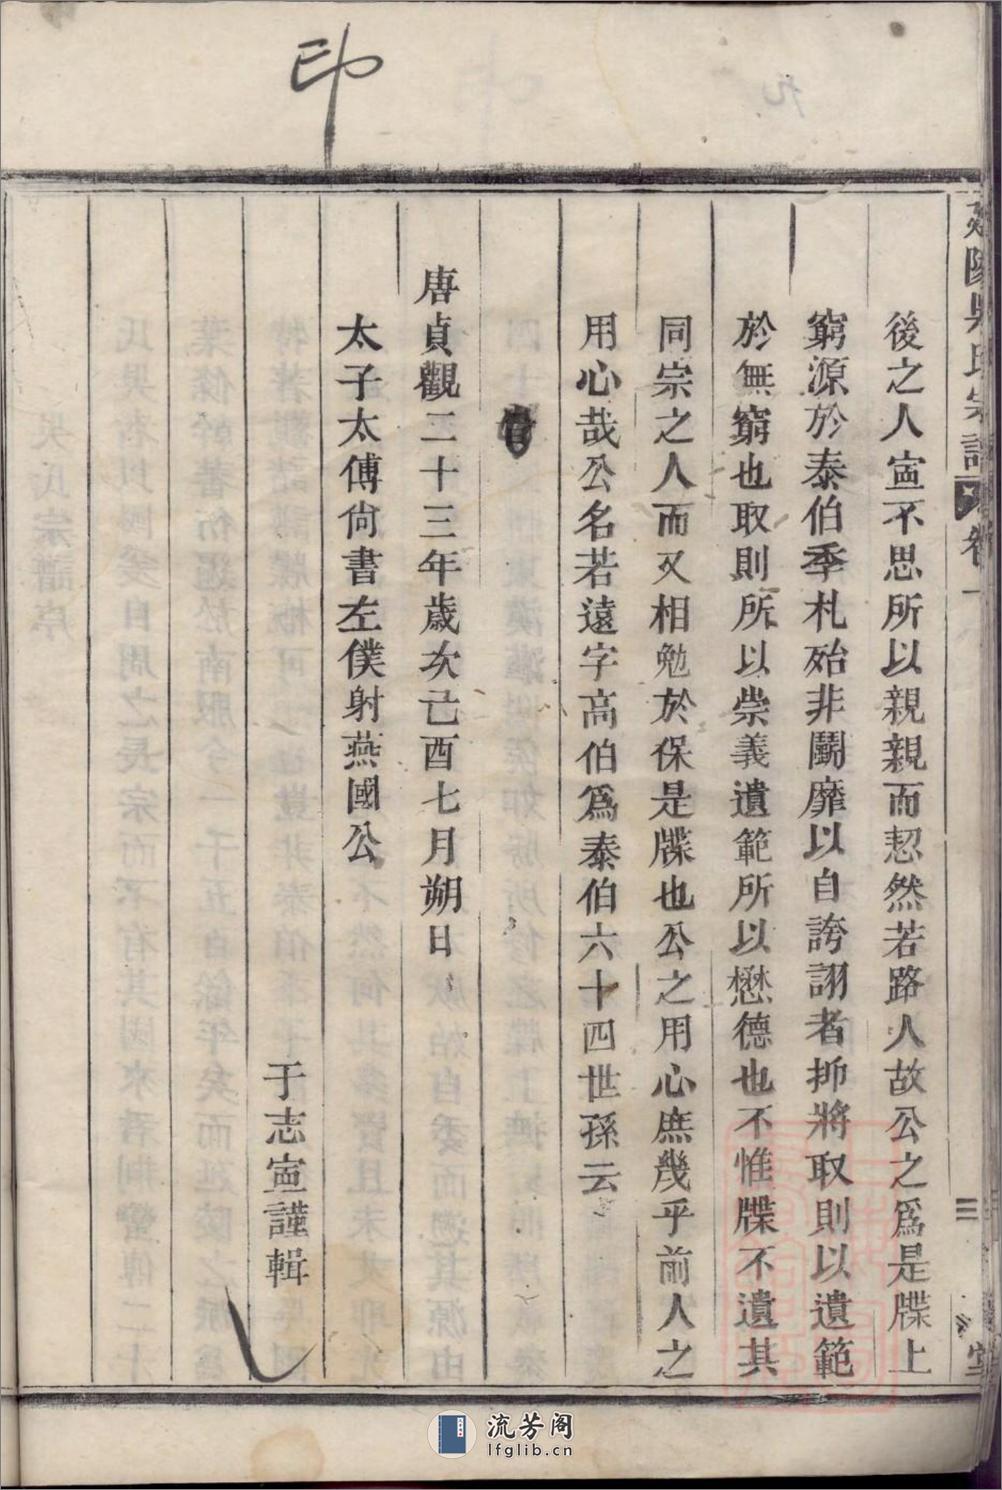 印
延陵吳氏宗譜 卷一 三 堂
後之人寍不思所以親親而恝然若路人故公之爲是牒上
窮源於泰伯季札殆非鬭靡以自誇詡者抑將取則以遺範
於無窮也取則所以崇義遺範所以懋德也不惟牒不遺其
同宗之人而又相勉於保是牒也公之用心庶幾乎前人之
用心哉公名若遠字高伯爲泰伯六十四世孫云
唐貞觀二十三年歲次己酉七月朔日
太子太傅尙書左僕射燕國公
于志寍謹輯
流芳阁
lfglib.cn